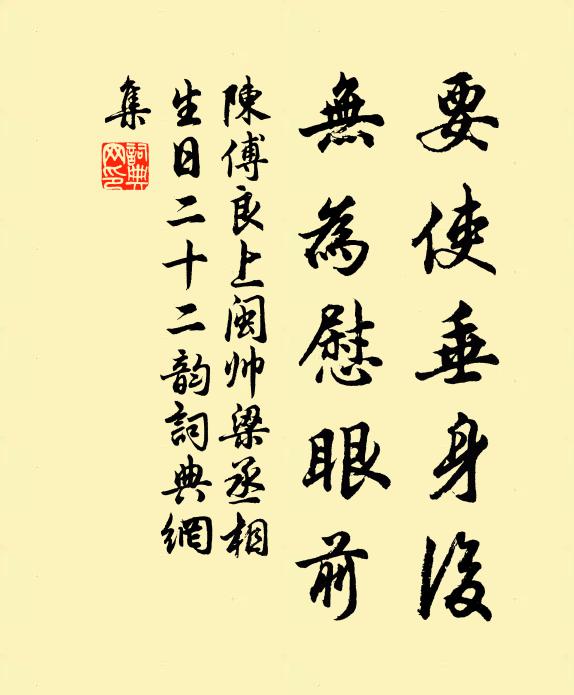 要使垂身後
無為慰眼前
陳傅良上閩帅梁丞相
生日二十二韵詞典網
集
詞典网印